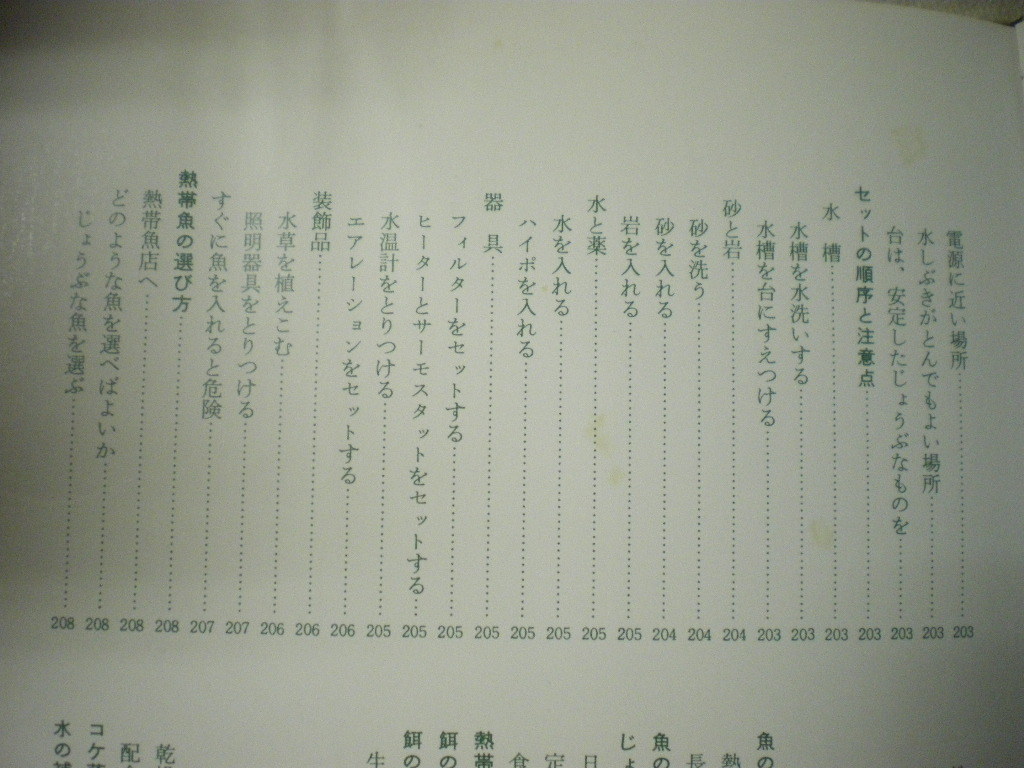 電源に近い場所 203
水しぶきがとんでもよい場所 203
台は、安定したじょうぶなものを 203
セットの順序と注意点 203
水槽 203
水槽を水洗いする 203
水槽を台にすえつける 203
砂と岩 204
砂を洗う 204
砂を入れる 204
岩を入れる 205
水と薬 205
水を入れる 205
ハイポを入れる 205
器具 205
フィルターをセットする 205
ヒーターとサーモスタットをセットする 205
水温計をとりつける 205
エアレーションをセットする 206
装飾品 206
水草を植えこむ 206
照明器具をとりつける 207
すぐに魚を入れると危険 207
熱帯魚の選び方 208
熱帯魚店へ 208
どのような魚を選べばよいか 208
じょうぶな魚を選ぶ 208
魚の
熱
長
魚の
じょ
日
定
食
熱帯
餌の
餌の
生
乾
配
コケ
水の